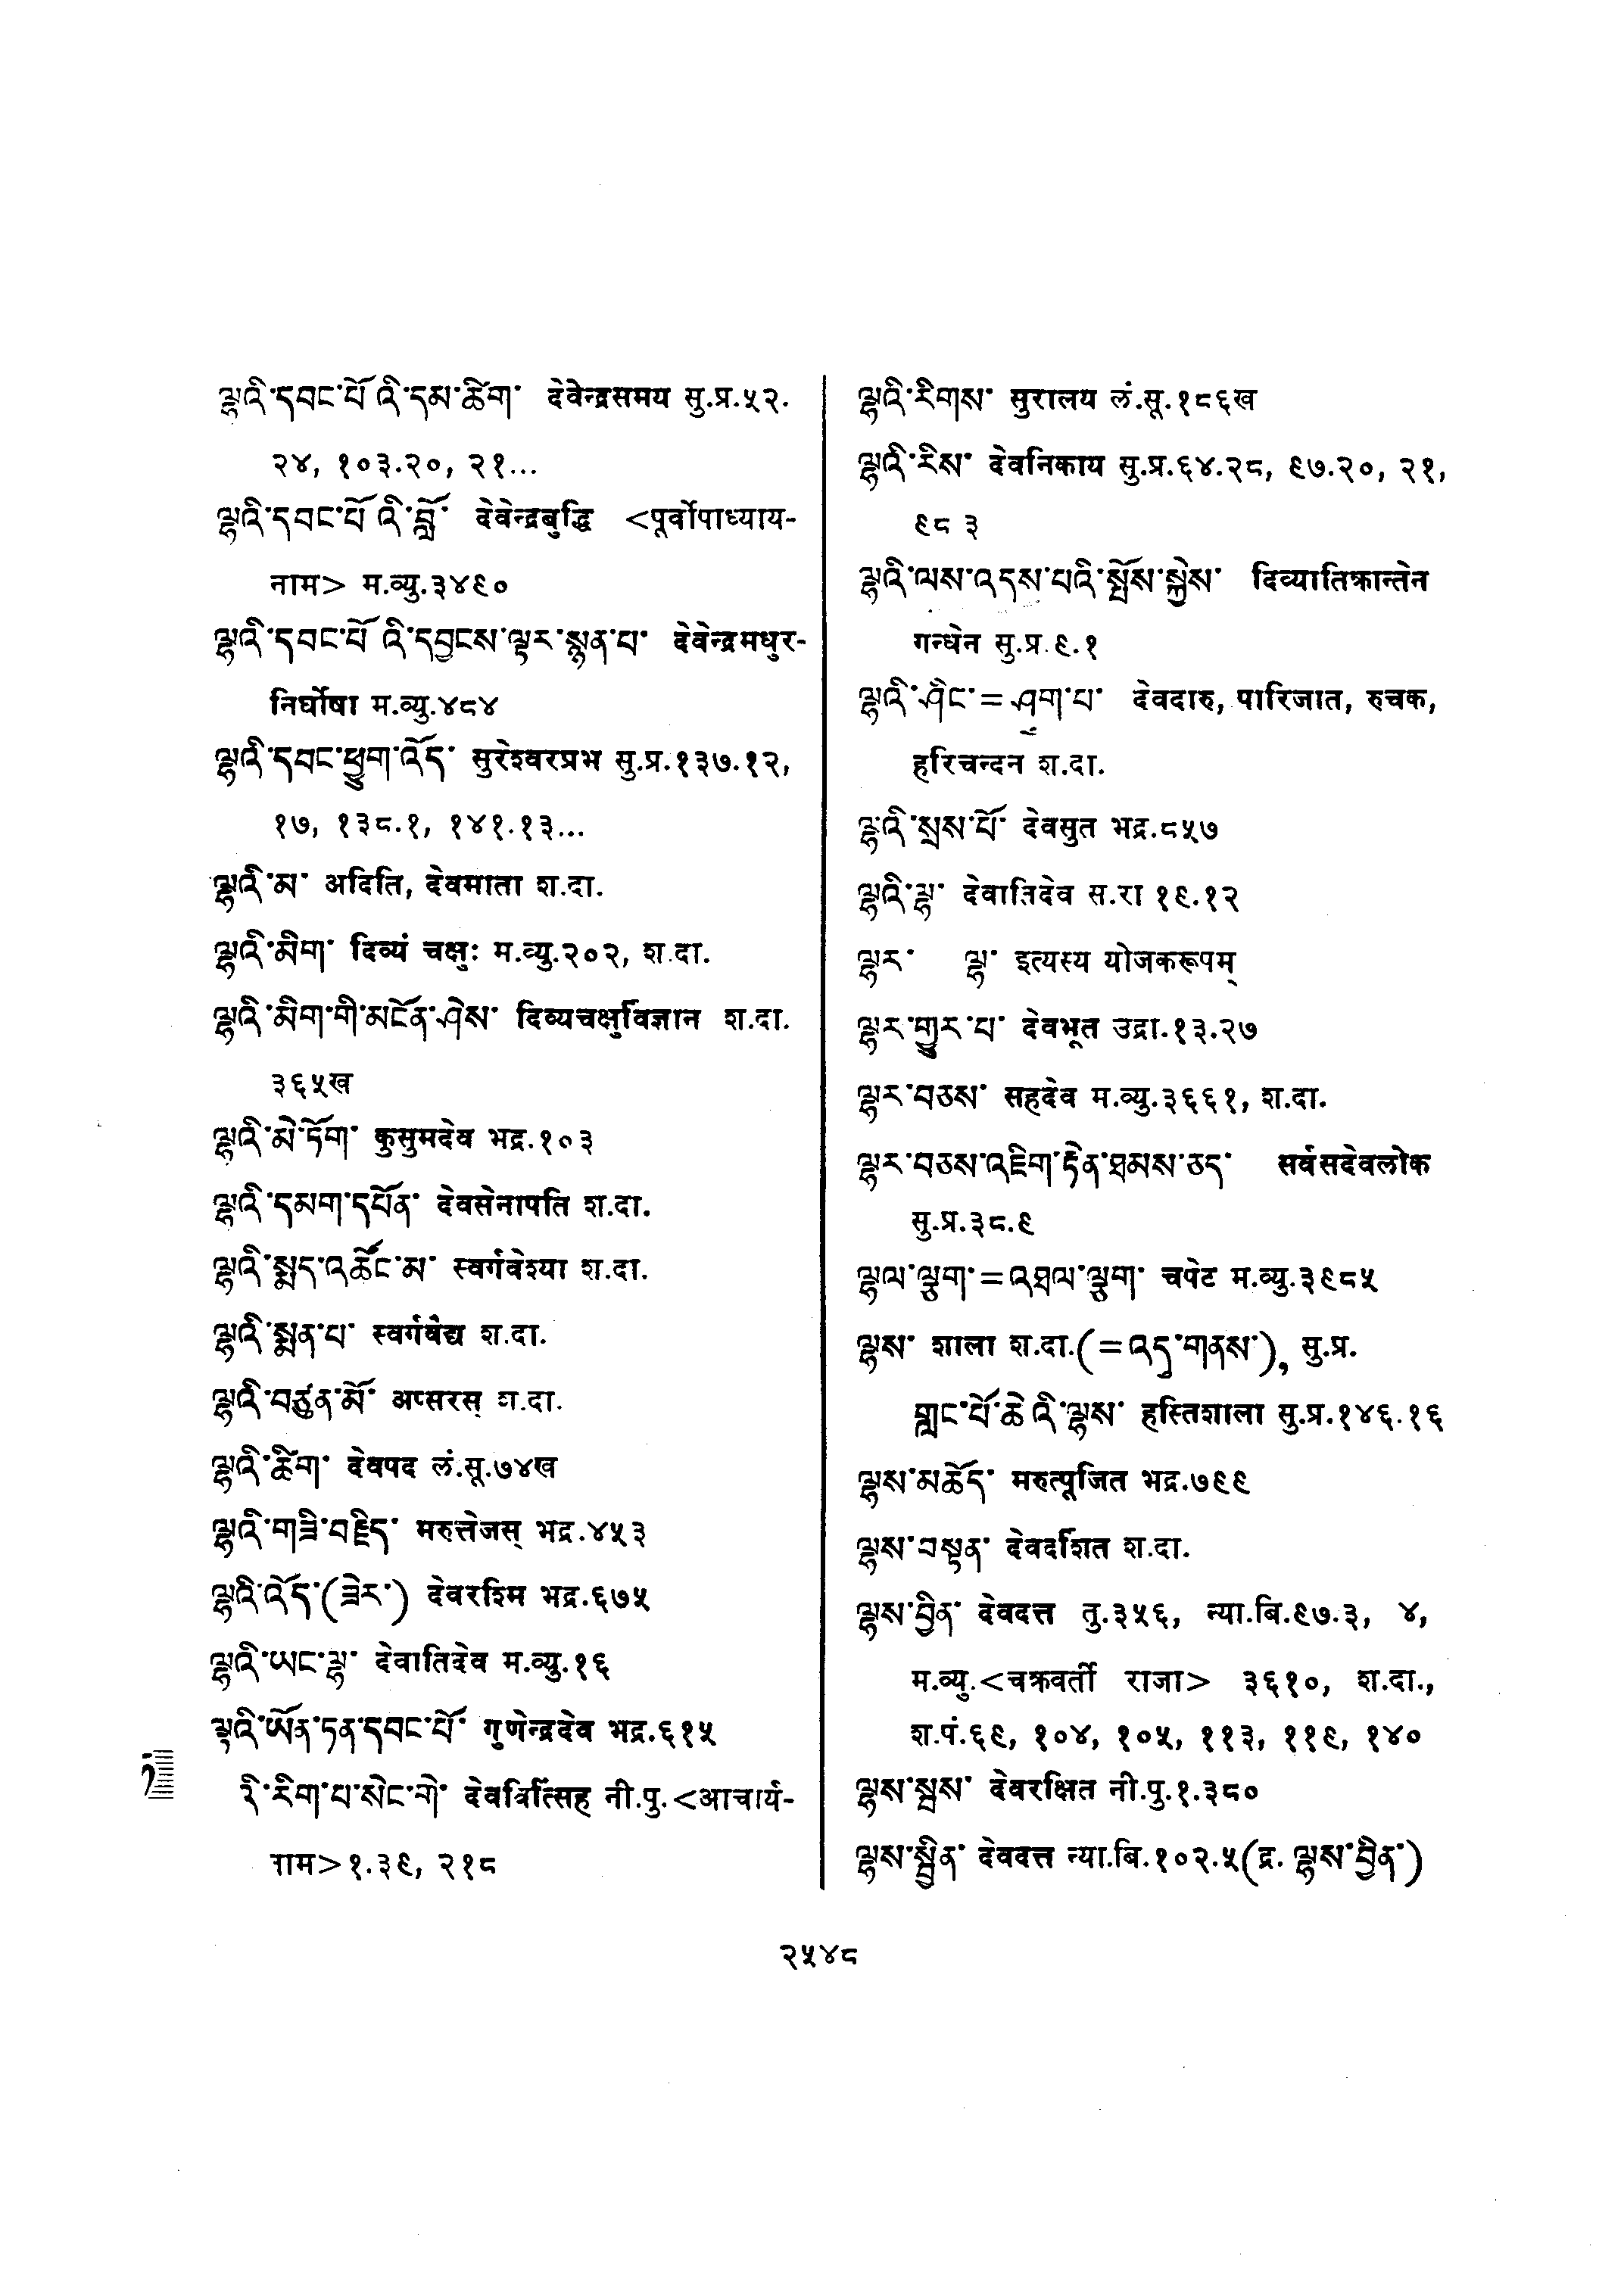 ལྷའི་དབང་པོ་འི་དམ་ཚིག་ देवेन्द्रसमय सु.प्र.५२.
२४, १०३.२०, २१...
ལྷའི་དབང་པོ་འི་བློ་ देवेन्द्रबुद्धि <पूर्वोपाध्याय-
नाम> म.व्यु.३४९०
ལྷའི་དབང་པོ་འི་དབྱངས་ལྟར་སྙན་པ་ देवेन्द्रमधुर-
निर्घोषा म.व्यु.४८४
ལྷའི་དབང་ཕྱུག་འོད་ सुरेश्वरप्रभ सु.प्र.१३७.१२,
१७, १३८.१, १४१.१३...
ལྷའི་མ་ अदिति, देवमाता श.दा.
ལྷའི་མིག་ दिव्यं चक्षुः म.व्यु.२०२, श.दा.
ལྷའི་མིག་གི་མངོན་ཤེས་ दिव्यचक्षुर्विज्ञान श.दा.
३६५ख
ལྷའི་མེ་ཏོག་ कुसुमदेव भद्र.१०३
ལྷའི་དམག་དཔོན་ देवसेनापति श.दा.
ལྷའི་སྨད་འཚོང་མ་ स्वर्गवेश्या श.दा.
ལྷའི་སྨན་པ་ स्वर्गवैद्य श.दा.
ལྷའི་བཙུན་མོ་ अप्सरस् श.दा.
ལྷའི་ཚིག་ देवपद लं.सू.७४ख
ལྷའི་གཟི་བརྗིད་ मरुत्तेजस् भद्र.४५३
ལྷའི་འོད་(ཟེར་) देवरश्मि भद्र.६७५
ལྷའི་ཡང་ལྷ་ देवातिदेव म.व्यु.१६
ལྷའི་ཡོན་ཏན་དབང་པོ་ गुणेन्द्रदेव भद्र.६१५
རི་རིག་པ་སེང་གེ་ देववित्सिंह नी.पु.<आचार्य-
नाम>१.३९, २१८
ལྷའི་རིགས་ सुरालय लं.सू.१८६ख
ལྷའི་རིས་ देवनिकाय सु.प्र.६४.२८, ९७.२०, २१,
९८ ३
ལྷའི་ལས་འདས་པའི་སྤོས་སྐྱེས་ दिव्यातिक्रान्तेन
गन्धेन सु.प्र.९.१
ལྷའི་ཤིང་=ཤུག་པ་ देवदारु, पारिजात, रुचक,
हरिचन्दन श.दा.
ལྷའི་སྲས་པོ་ देवसुत भद्र.८५७
ལྷའི་ལྷ་ देवातिदेव स.रा १९.१२
ལྷར་ ལྷ་ इत्यस्य योजकरूपम्
ལྷར་གྱུར་པ་ देवभूत उद्रा.१३.२७
ལྷར་བཅས་ सहदेव म.व्यु.३६६१, श.दा.
ལྷར་བཅས་འཇིག་རྟེན་ཐམས་ཅད་ सर्वसदेवलोक
सु.प्र.३८.९
ལྷལ་ལྕག་=འཐལ་ལྕག་ चपेट म.व्यु.३९८५
ལྷས་ शाला श.दा.(=འདུ་གནས་), सु.प्र.
གླང་པོ་ཆེ་འི་ལྷས་ हस्तिशाला सु.प्र.१४६.१६
ལྷས་མཆོད་ मरुत्पूजित भद्र.७९९
ལྷས་བསྟན་ देवदर्शित श.दा.
ལྷས་བྱིན་ देवदत्त तु.३५६, न्या.बि.९७.३, ४,
म.व्यु.<चक्रवर्ती राजा> ३६१०, श.दा.,
श.पं.६९, १०४, १०५, ११३, ११९, १४०
ལྷས་སྦས་ देवरक्षित नी.पु.१.३८०
ལྷས་སྦྱིན་ देवदत्त न्या.बि.१०२.५(द्र. ལྷས་བྱིན་)
२५४८